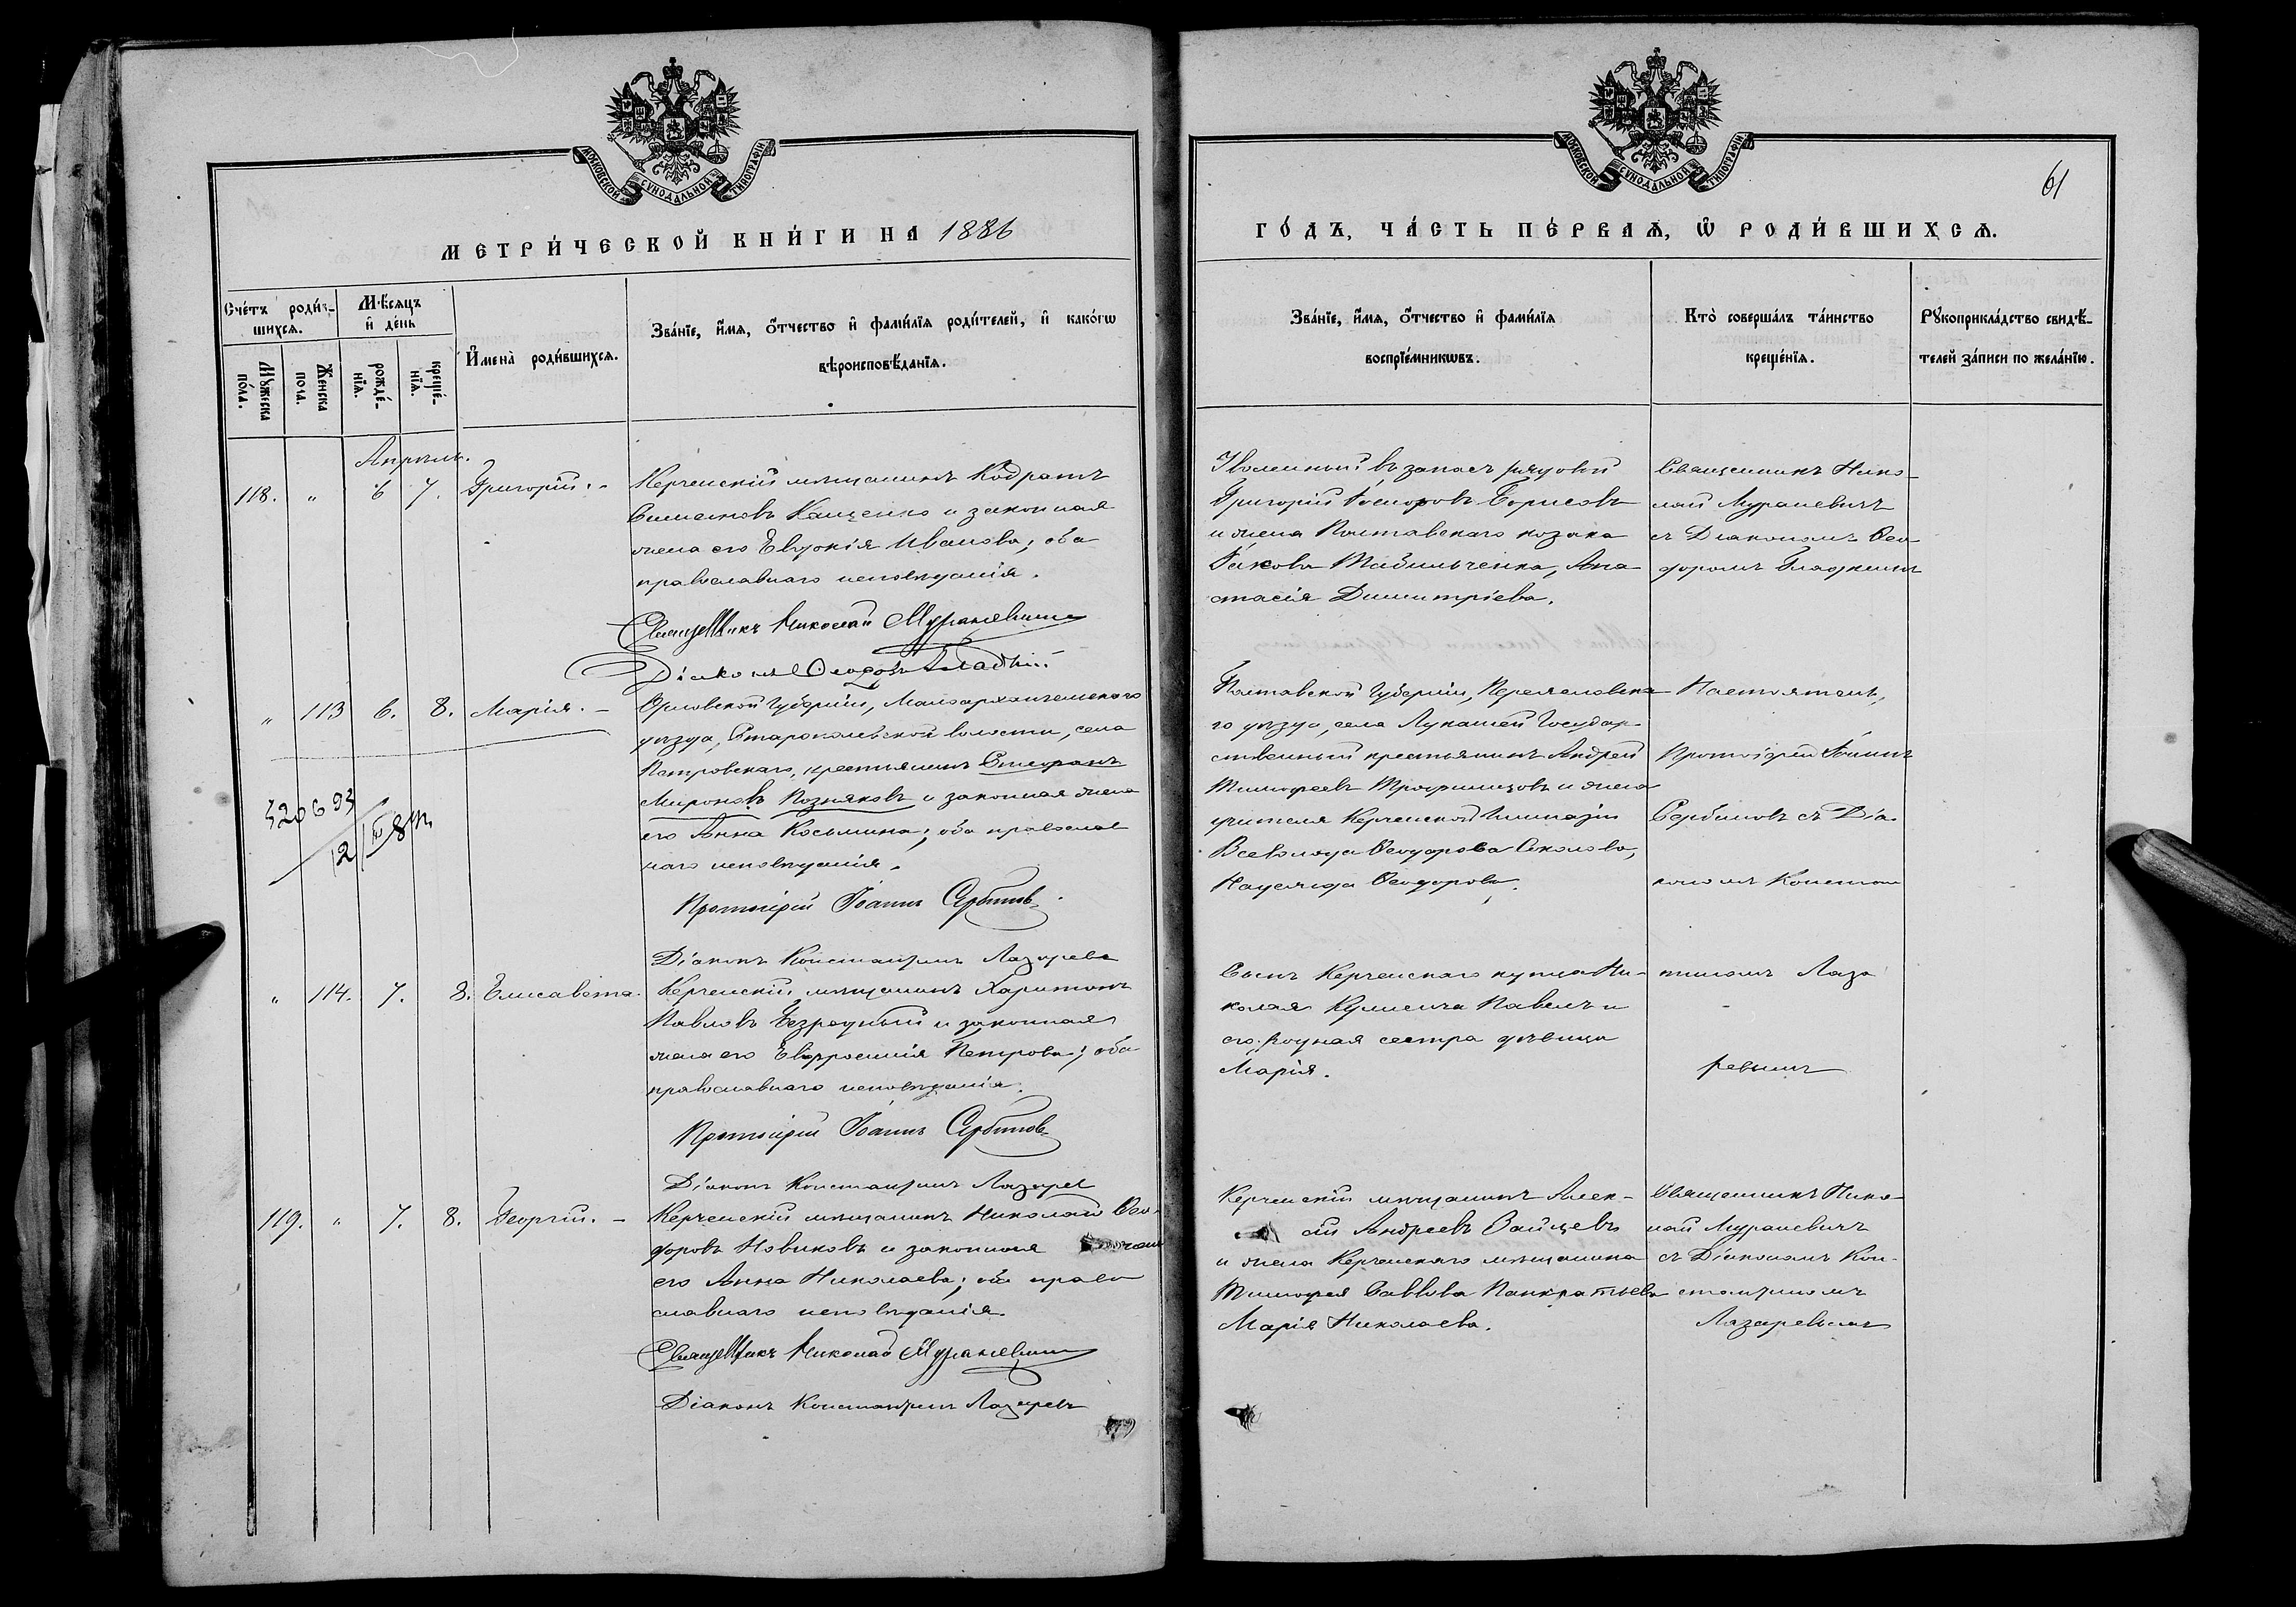 МОСКОВСКОЙ СѴНОДАЛЬНОЙ ТИПОГРАФІИ
МЕТРИ́ЧЕСКОЙ КНИ́ГИ НА 1886
Сче́тъ роди́в-
шихся.
Мѣ́сяцъ
и҆ де́нь
Мꙋжеска
по́ла.
Женска
пола.
рожде́-
нїѧ.
креще́-
нїѧ.
И҆мена̀ роди́вшихсѧ.
Зва́нїе, и҆́мѧ, ѻ҆́тчество и҆ фами́лїѧ роди́телей, и҆ како́гѡ
вѣроисповѣ́данїѧ.
Апрѣль.
118. " 6 7. Григорій. -
Керченскій мѣщанинъ Кодратъ
Симеоновъ Кащенко и законная
жена его Евдокія Иванова; оба
православнаго исповѣданія.
Священникъ Николай Мураневичъ
Діаконъ Ѳеодоръ Гладкій
" 113 6. 8. Марія. -
Орловской Губерніи, Малоархангельскаго
уѣзда, волости, села
Петровскаго, крестьянинъ Стефанъ
Мироновъ Позняковъ и законная жена
его Анна Косьмина; оба православ
наго исповѣданія.
Протоіерей Іоаннъ Сербиновъ
Діаконъ Константинъ Лазаревъ
" 114. 7. 8. Елисавета.
Керченскій мѣщанинъ Харитонъ
Павловъ Безродный и законная
жена его Евфросинія Петрова; оба
православнаго исповѣданія.
Протоіерей Іоаннъ Сербиновъ
Діаконъ Константинъ Лазаревъ
119. " 7. 8. Георгій. -
Керченскій мѣщанинъ Николай Ѳео-
доровъ Новиковъ и законная
его Анна Николаева; оба право
славнаго исповѣданія.
Священникъ Николай Мураневичъ
Діаконъ Константинъ Лазаревъ
МОСКОВСКОЙ СѴНОДАЛЬНОЙ ТИПОГРАФІИ
61
ГО́ДЪ, ЧА́СТЬ ПЕ́РВАѦ, Ѡ҆ РОДИ́ВШИХСѦ.
Зва́нїе, и҆́мѧ, ѻ҆́тчество и҆ фами́лїѧ
воспрїе́мникѡвъ.
Кто̀ соверша́лъ та́инство
креще́нїѧ.
Рꙋкоприкла́дство свидѣ́-
телей за́писи по жела́нїю.
Уволенный въ запасъ рядовой
Григорій Борисовъ
и жена Полтавскаго козака
Якова Ана
стасія Димитріева.
Священникъ Нико-
лай Мураневичъ
съ Діакономъ Ѳео
доромъ Гладкимъ
Полтавской Губерніи, Переяславска
го уѣзда, села Лукашей Государ-
ственный крестьянинъ Андрей
Тимофеевъ и жена
учителя Керченской Гимназіи
Всеволода Ѳеодорова Соколова,
Надежда Ѳеодорова.
Настоятель,
Протоіерей Іоаннъ
Сербиновъ съ Діа-
кономъ Констан
Сынъ Керченскаго купца Ни-
колая Павелъ и
его родная сестра дѣвица
Марія.
тиномъ Лаза
-
ревымъ
Керченскій мѣщанинъ Алек-
сѣй Андреевъ Зайцевъ
и жена Керченскаго мѣщанина
Тимофея Саввова Панкратьева
Марія Николаева.
Священникъ Нико-
лай Мураневичъ
съ Діакономъ Кон-
стантиномъ
Лазаревымъ